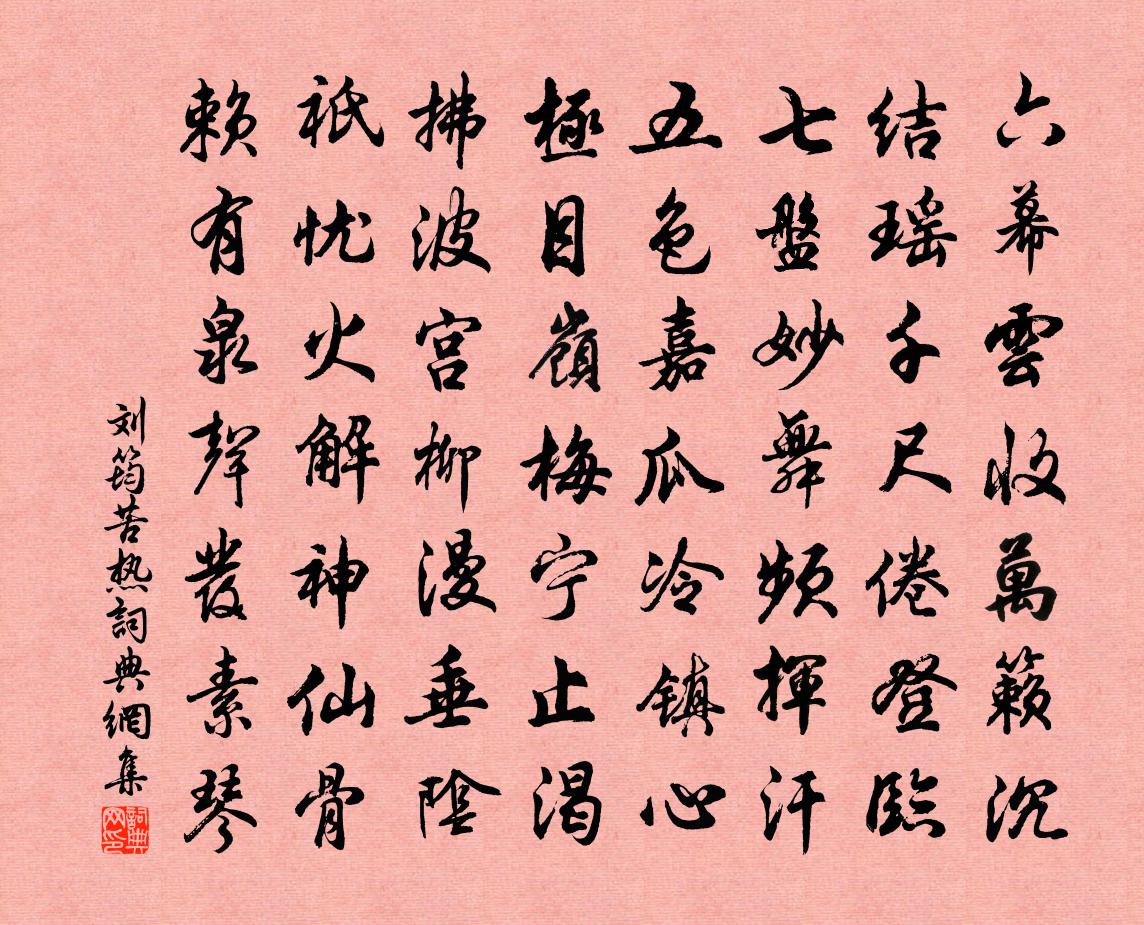 六幕雲收萬籟沉
结瑶千尺倦登臨
七盤妙舞頻揮汗
五色嘉瓜冷镇心
極目嶺梅宁止渴
拂波宫柳漫垂陰
祇忧火解神仙骨
赖有泉聲發素琴
刘筠苦热詞典網集
詞典網印